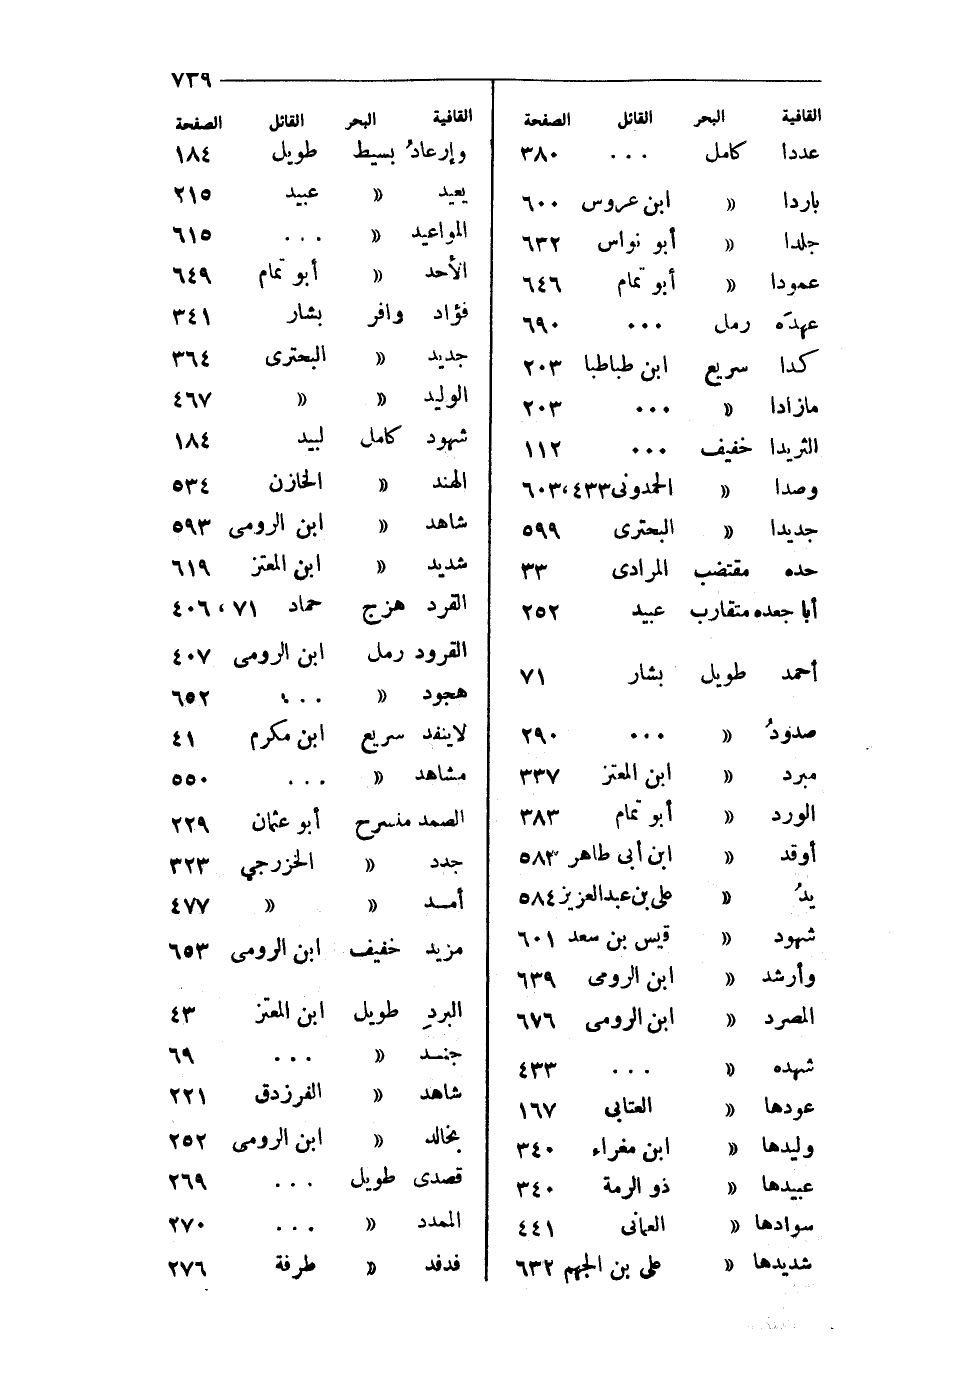 ٧٣٩
القافية البحر القائل الصفحة
عددا كامل ... ٣٨٠
باردا « ابن عروس ٦٠٠
جلدا « أبو نواس ٦٣٢
عمودا « أبو تمام ٦٤٦
عهدَه رمل ... ٦٩٠
كدا سريع ابن طباطبا ٢٠٣
مازادا « ... ٢٠٣
الثريدا خفيف ... ١١٢
وصدا « الحمدونى ٤٣٣، ٦٠٣
جديدا « البحترى ٥٩٩
حده مقتضب المرادى ٣٣
أبا جعده متقارب عبيد ٢٥٢
أحمد طويل بشار ٧١
صدودُ « ... ٢٩٠
مبرد « ابن المعتز ٣٣٧
الورد « أبو تمام ٣٨٣
أوقد « ابن أبى طاهر ٥٨٣
يدُ « على بن عبدالعزيز ٥٨٤
شهود « قيس بن سعد ٦٠١
وأرشد « ابن الرومى ٦٣٩
المصرد « ابن الرومى ٦٧٦
شهده « ... ٤٣٣
عودها « العتابى ١٦٧
وليدها « ابن مغراء ٣٤٠
عبيدها « ذو الرمة ٣٤٠
سوادها « العمانى ٤٤١
شديدها « على بن الجهم ٦٣٢
القافية البحر القائل الصفحة
وإرعادُ بسيط طويل ١٨٤
يعيد « عبيد ٢١٥
المواعيد « ... ٦١٥
الأحد « أبو تمام ٦٤٩
فؤاد وافر بشار ٣٤١
جديد « البحترى ٣٦٤
الوليد « « ٤٦٧
شهود كامل لبيد ١٨٤
الهند « الخازن ٥٣٤
شاهد « ابن الرومى ٥٩٣
شديد « ابن المعتز ٦١٩
القرد هزج حماد ٧١، ٤٠٦
القرود رمل ابن الرومى ٤٠٧
هجود « ... ٦٥٢
لاينفد سريع ابن مكرم ٤١
مشاهد « ... ٥٥٠
الصمد منسرح أبو عثمان ٢٢٩
جدد « الخزرجي ٣٢٣
أمـد « « ٤٧٧
مزيد خفيف ابن الرومى ٦٥٣
البردِ طويل ابن المعتز ٤٣
جنـد « ... ٦٩
شاهد « الفرزدق ٢٢١
بخالد « ابن الرومى ٢٥٢
قصدى طويل ... ٢٦٩
الممدد « ... ٢٧٠
فدفد « طرفة ٢٧٦